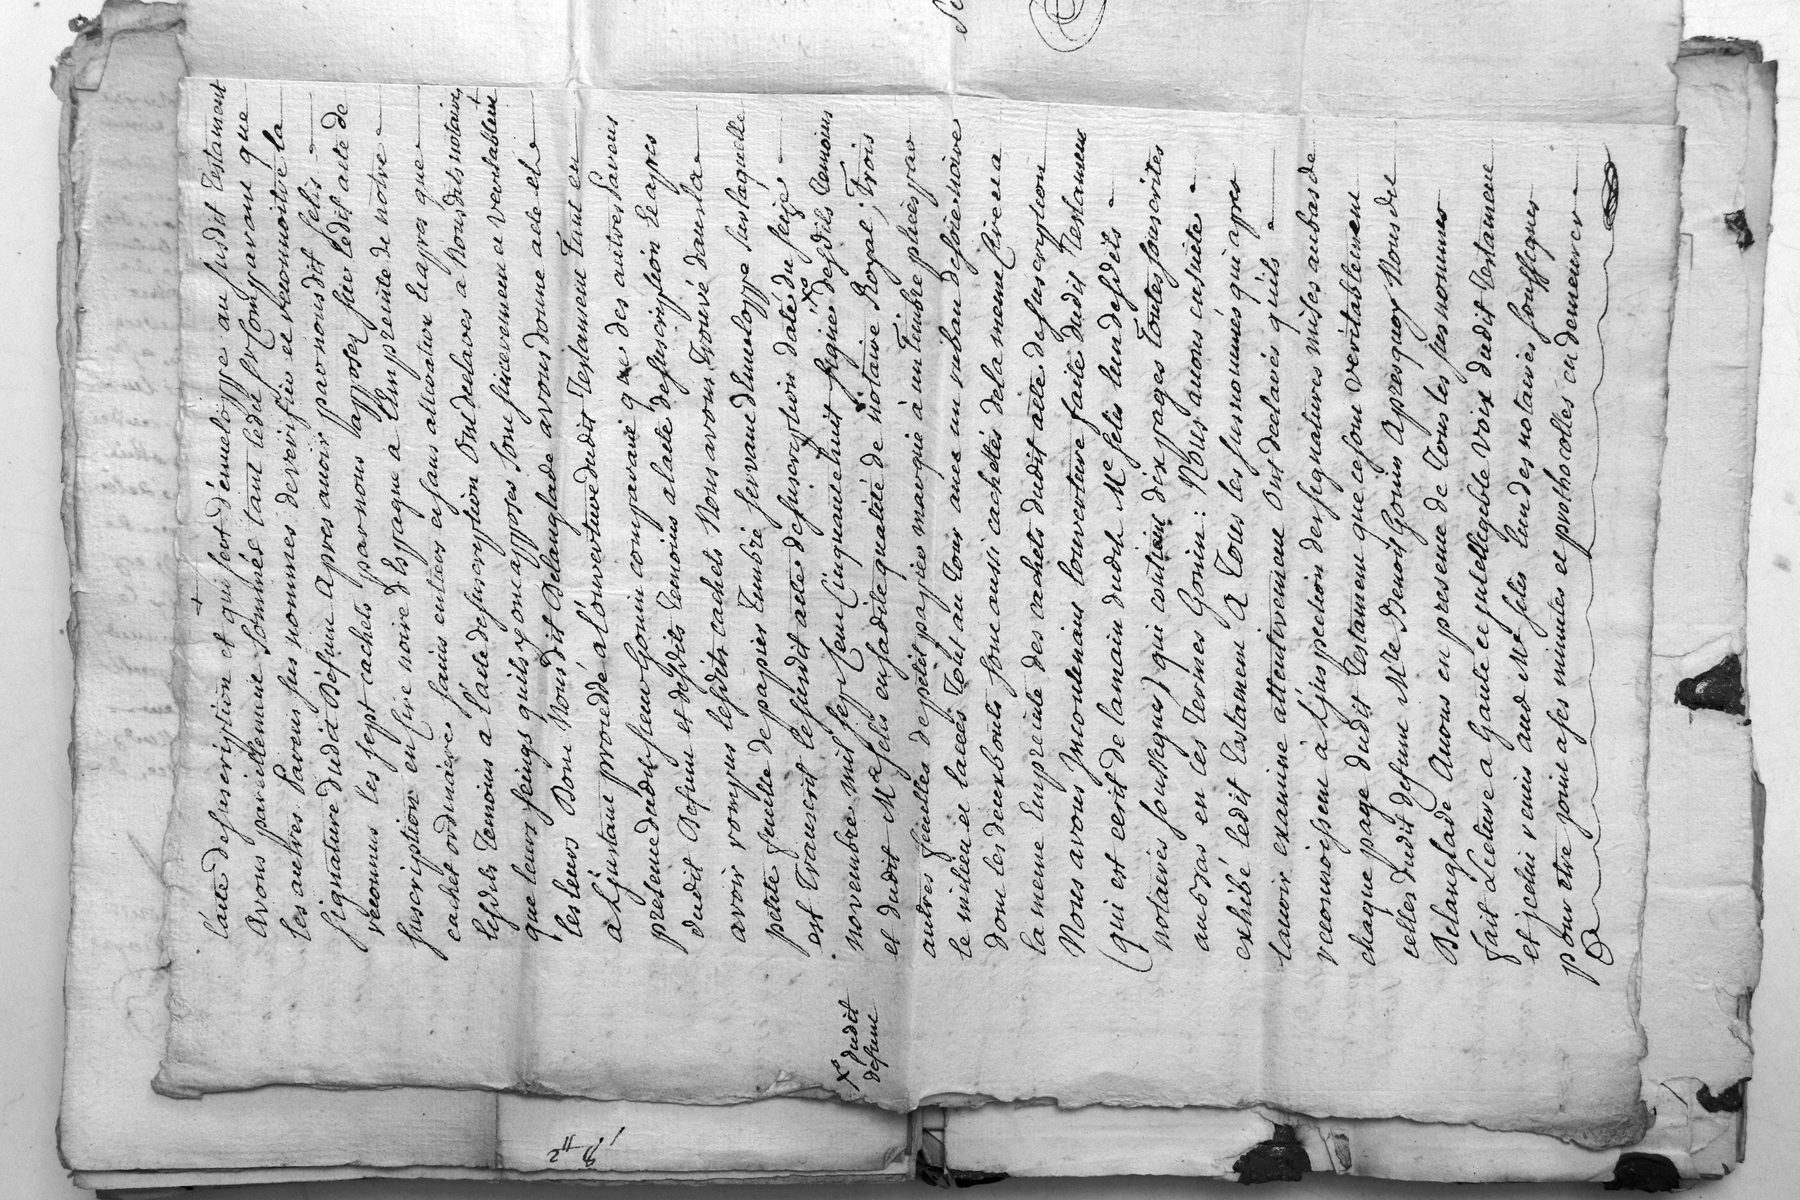 l'acte de suscription et qui sert d'enueloppe au susdit Testament
Avons pareillement sommés tant ledit Sr Comparant que
les autres Parens sus nommés de verifier et reconnoitre la
signature dudit Défunt apres avoir par nous dit felis
reconnus les sept cachets par nous apposés sur ledit acte de
suscription en Cire noire d'Espagne a l'Empreinte de notre
cachet ordinaire sains entiers et sans alteration Et apres que
lesdits Temoins a l'acte de suscription Ont declarés a Nousdits notaires
que leurs seings quils y ont apposés sont sincerement et veritablement
les leurs Dont Nous dit Delanglade avons donné acte et
a L'instant procedé a l'ouverture dudit Testament Tant en
presence dudit sieur Gonin comparant q des autres Parens
dudit Defunt et desdits temoins a l'acte de suscription Et apres
avoir rompus lesdits cachets Nous avons trouvé dans la
petite feuille de papier timbré servant d'enveloppe sur laquelle
est transcrit le susdit acte de suscription daté du seize
novembre mil sept Cent Cinquante huit signé Xo desdits temoins
et dudit Me felis en sadite qualité de notaire Royal, Trois
Xo dudit
défunt
autres feuilles de petit papier marqué à un timbre pliées par
le milieu et lacées Tout au Tour avec un ruban de soie noire
dont les deux bouts sont aussi cachetés de la meme Cire et a
la meme Empreinte des cachets dudit acte de suscription
Nous avons Incontenant l'ouverture faite dudit Testament
(qui est ecrit de la main dudit Me felis lun desdits
notaires soussignés) qui contient dix pages Toutes souscrites
au bas en ces termes Gonin: Nous avons ensuite
exhibé ledit Testament A Tous les susnommés qui apres
l'avoir examiné attentivement Ont declarés quils
reconnoissent à L'inspection des signatures mises au bas de
chaque page dudit Testament que ce sont véritablement
celles dudit defunt Mre Benoit Gonin Apres quoy Nous dit
Delanglade Avons en presence de Tous les sus nommés
fait Lecture a haute et intelligible voix dudit Testament
et icelui remis aud Me felis l'un des notaires soussignés
pour etre joint a ses minutes et prothocolles en demeurer